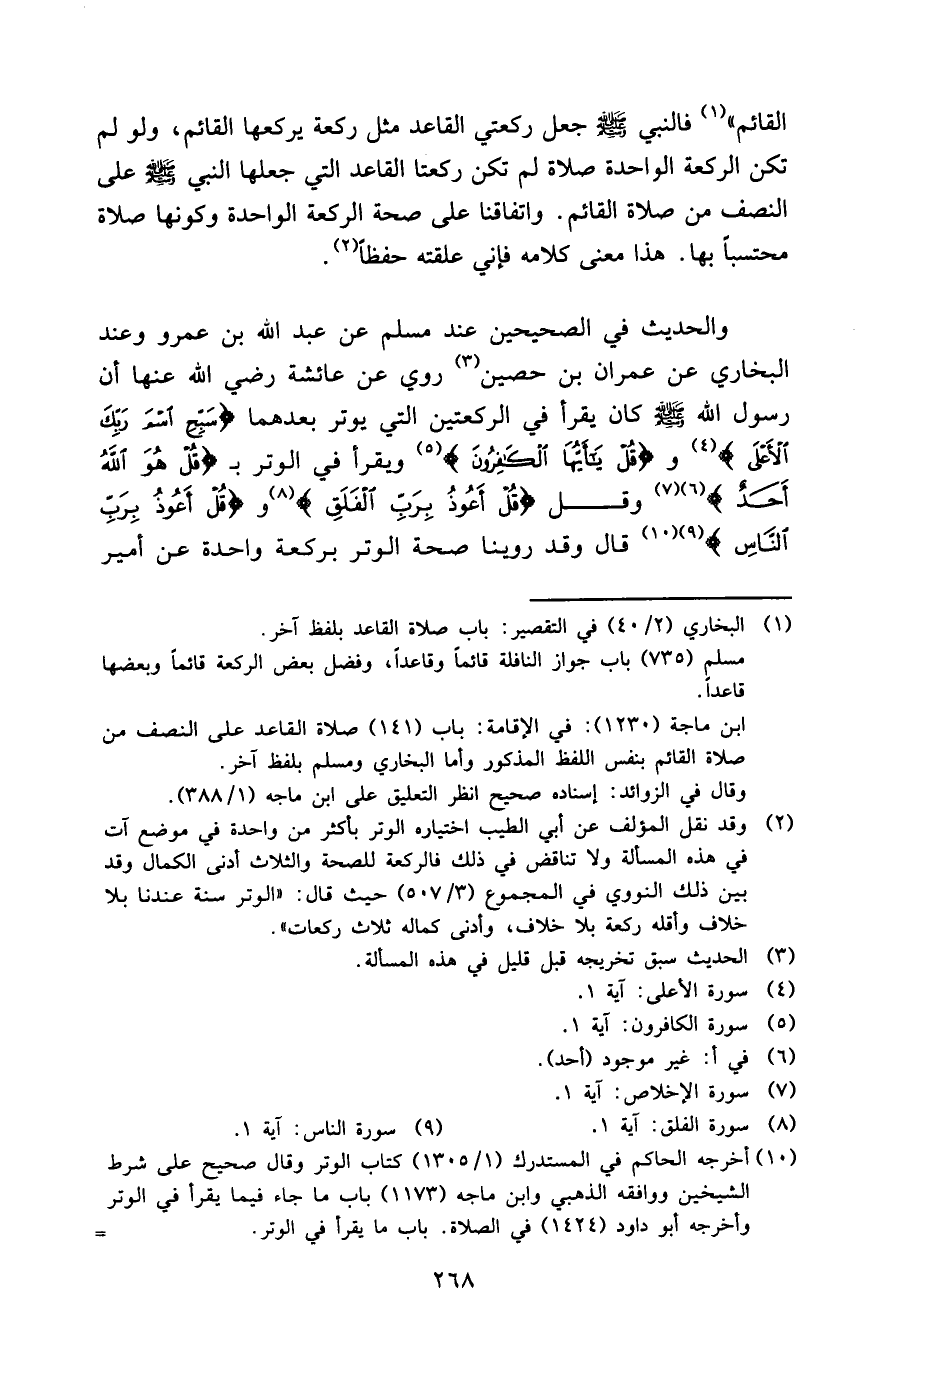 القائم»(١) فالنبي ﷺ جعل ركعتي القاعد مثل ركعة يركعها القائم، ولو لم
تكن الركعة الواحدة صلاة لم تكن ركعتا القاعد التي جعلها النبي ﷺ على
النصف من صلاة القائم. واتفاقنا على صحة الركعة الواحدة وكونها صلاة
محتسباً بها. هذا معنى كلامه فإني علقته حفظاً(٢).
والحديث في الصحيحين عند مسلم عن عبد الله بن عمرو وعند
البخاري عن عمران بن حصين(٣) روي عن عائشة رضي الله عنها أن
رسول الله ﷺ كان يقرأ في الركعتين التي يوتر بعدهما ﴿سَبِّحِ ٱسْمَ رَبِّكَ
ٱلْأَعْلَى﴾(٤) و ﴿قُلْ يَٰٓأَيُّهَا ٱلْكَٰفِرُونَ﴾(٥) ويقرأ في الوتر بـ ﴿قُلْ هُوَ ٱللَّهُ
أَحَدٌ﴾(٦)(٧) وقــــل ﴿قُلْ أَعُوذُ بِرَبِّ ٱلْفَلَقِ﴾(٨) و ﴿قُلْ أَعُوذُ بِرَبِّ
ٱلنَّاسِ﴾(٩)(١٠) قال وقد روينا صحة الوتر بركعة واحدة عن أمير
(١) البخاري (٢/ ٤٠) في التقصير: باب صلاة القاعد بلفظ آخر.
مسلم (٧٣٥) باب جواز النافلة قائماً وقاعداً، وفضل بعض الركعة قائماً وبعضها
قاعداً.
ابن ماجة (١٢٣٠): في الإقامة: باب (١٤١) صلاة القاعد على النصف من
صلاة القائم بنفس اللفظ المذكور وأما البخاري ومسلم بلفظ آخر.
وقال في الزوائد: إسناده صحيح انظر التعليق على ابن ماجه (١/ ٣٨٨).
(٢) وقد نقل المؤلف عن أبي الطيب اختياره الوتر بأكثر من واحدة في موضع آت
في هذه المسألة ولا تناقض في ذلك فالركعة للصحة والثلاث أدنى الكمال وقد
بين ذلك النووي في المجموع (٣/ ٥٠٧) حيث قال: «الوتر سنة عندنا بلا
خلاف وأقله ركعة بلا خلاف، وأدنى كماله ثلاث ركعات».
(٣) الحديث سبق تخريجه قبل قليل في هذه المسألة.
(٤) سورة الأعلى: آية ١.
(٥) سورة الكافرون: آية ١.
(٦) في أ: غير موجود (أحد).
(٧) سورة الإخلاص: آية ١.
(٨) سورة الفلق: آية ١. (٩) سورة الناس: آية ١.
(١٠) أخرجه الحاكم في المستدرك (١/ ١٣٠٥) كتاب الوتر وقال صحيح على شرط
الشيخين ووافقه الذهبي وابن ماجه (١١٧٣) باب ما جاء فيما يقرأ في الوتر
وأخرجه أبو داود (١٤٢٤) في الصلاة. باب ما يقرأ في الوتر. =
٢٦٨